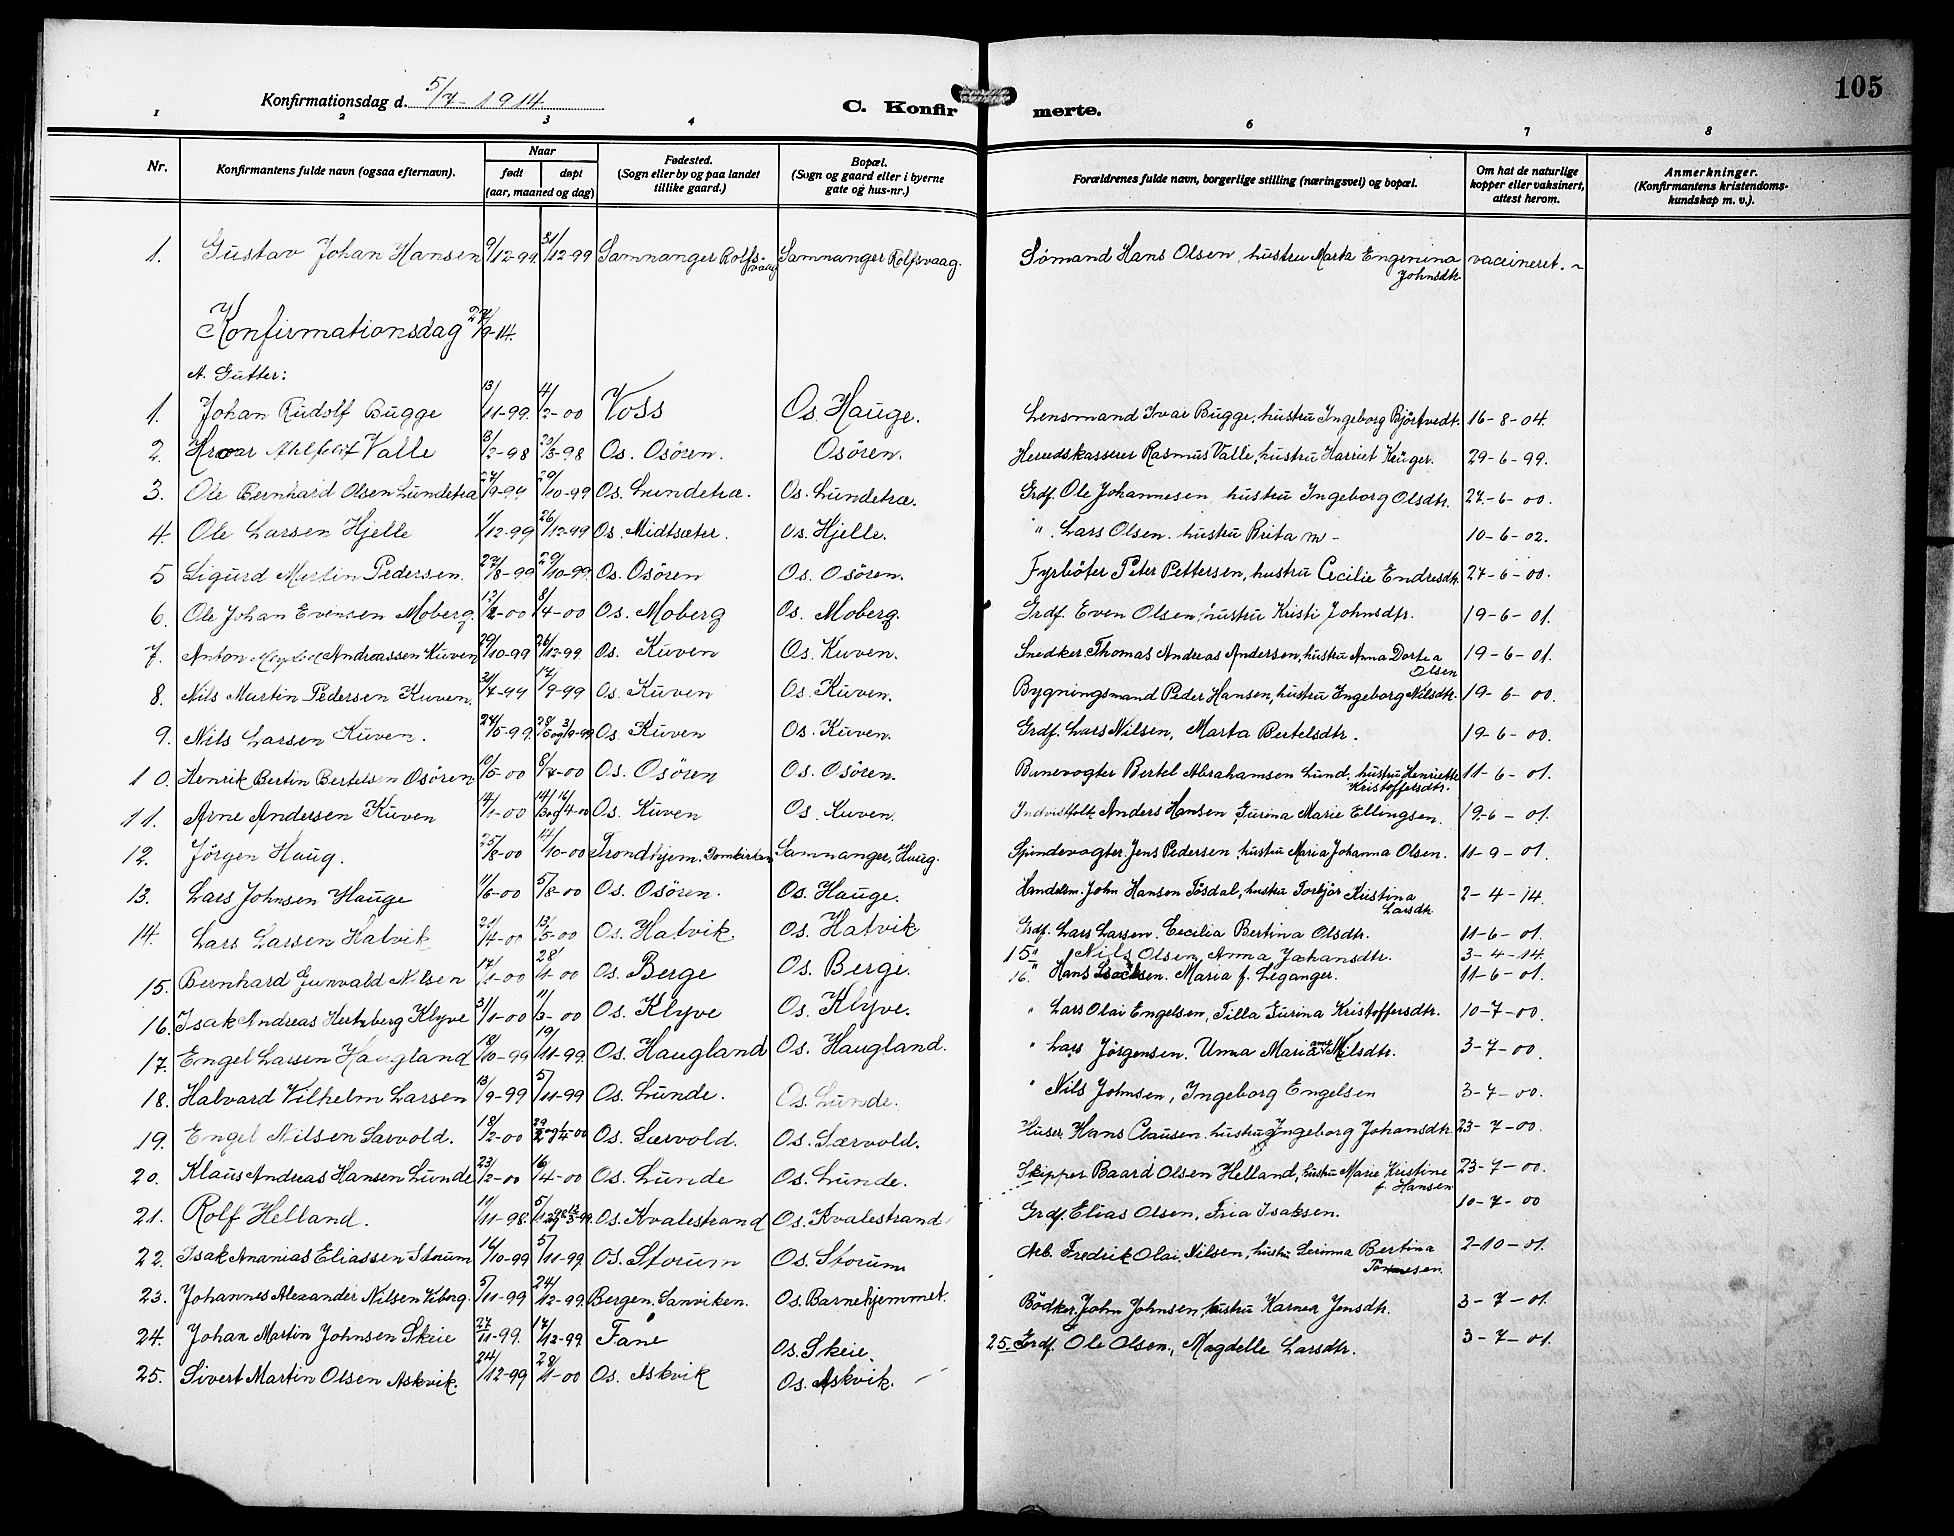 105
Konfirmationsdag d. 5/7-1914
C. Konfirmerte.
1 2 3 4 5 6 7 8
Nr. Konfirmantens fulde navn (ogsaa efternavn). Naar født døpt (aar, maaned og dag) Fødested. (Sogn eller by og paa landet tillike gaard.) Bopæl. (Sogn og gaard eller i byerne gate og hus-nr.) Forældrenes fulde navn, borgerlige stilling (næringsvei) og bopæl. Om hat de naturlige kopper eller vaksinert, attest herom. Anmerkninger. (Konfirmantens kristendoms-kundskap m. v.).
1. Gustav Johan Hansen 9/12-99. 31/12-99 Samnanger Rolfsvaag Samnanger Rolfsvaag. Sømand Hans Olsen, hustru Marta Engenina Johnsdtr. vaccineret.
Konfirmationsdag 27/9-14.
A. Gutter:
1. Johan Rudolf Bugge 13/11-99. 4/2-00 Voss Os. Hauge. Lensmand Ivar Bugge, hustru Ingeborg Bjørtvedt. 16-8-04.
2. Hroar Ahlfeldt Valle 13/2-98 Os. Osøren. Osøren. Herredskasserer Rasmus Valle, hustru Harriet Krüger. 29-6-99.
3. Ole Bernhard Olsen Lundetræ 27/9-99 29/10-99 Os. Lundetræ. Os. Lundetræ. Grdf. Ole Johannesen, hustru Ingeborg Olsdtr. 27-6-00.
4. Ole Larsen Hjelle 1/12-99 26/12-99 Os. Midtsæter. Os. Hjelle. " Lars Olsen. hustru Brita m - 10-6-02.
5 Sigurd Martin Pedersen. 27/8-99 29/10-99. Os. Osøren Os. Osøren. Fyrbøter Peter Pettersen, hustru Cecilie Endresdtr. 27-6-00.
6. Ole Johan Evensen Moberg. 12/2-00 8/4-00 Os. Moberg Os. Moberg. Grdf. Even Olsen, hustru Kristi Johnsdtr. 19-6-01.
7. Anton Andreassen Kuven 29/10-99 26/12-99. Os. Kuven Os. Kuven. Snedker Thomas Andreas Andersen, hustru Anna Dortea Olsen 19-6-01.
8. Nils Martin Pedersen Kuven. 31/7-99 17/9-99 Os. Kuven Os. Kuven. Bygningsmand Peder Hansen, hustru Ingeborg Nilsdtr. 19-6-00.
9. Nils Larsen Kuven. 24/5-99. 28/5 og 3/9-99 Os. Kuven Os. Kuven. Grdf. Lars Nilsen, Marta Bertelsdtr. 19-6-00.
10. Henrik Bertin Bertelsen Osøren 10/5-00 8/7-00 Os. Osøren Os. Osøren. Banevogter Bertel Abrahamsen Lund, hustru Henriette Kristoffersdtr. 11-6-01.
11. Arne Andersen Kuven 14/1-00 14/1 og 16/4-00 Os. Kuven Os. Kuven. Anders Hansen, Gurina Marie Ellingsen. 19-6-01.
12. Jørgen Haug. 25/8-00 14/10-00 Trondhjem. Domkirken Samnanger, Haug. Spindevogter Jens Pedersen, hustru Maria Johanna Olsen. 11-9-01.
13. Lars Johnsen Hauge 11/6-00 5/8-00 Os. Osøren. Os. Hauge. Handelsm. John Hansen Tøsdal, hustru Torbjør Kristina Larsdtr. 2-4-14.
14. Lars Larsen Hatvik 21/4-00 13/5-00 Os. Hatvik. Os. Hatvik Grdf. Lars Larsen. Cecilia Bertina Olsdtr. 11-6-01.
15. Bernhard Gunvald Nilsen 17/1-00 28/1-00 Os. Berge Os. Berge. 15. " Nils Olsen, Anna Johansdtr. 3-4-14.
16. Isak Andreas Hertzberg Klyve 31/1-00 11/3-00 Os. Klyve Os. Klyve. 16. " Hans Isaksen. Maria f. Leganger. 11-6-01.
17. Engel Larsen Haugland 18/10-99 19/11-99. Os. Haugland Os. Haugland. " Lars Olai Engelsen, Tilla Gurina Kristoffersdtr. 10-7-00.
18. Halvard Vilhelm Larsen 13/9-99 5/11-99 Os. Lunde. Os. Lunde. " Lars Jørgensen. Unna Maria Nilsdtr. 3-7-00.
19. Engel Nilsen Særvold. 18/2-00 Os. Særvold. Os. Særvold. " Nils Johnsen, Ingeborg Engelsen 3-7-00.
20. Klaus Andreas Hansen Lunde 23/2-00 16/4-00 Os. Lunde Os. Lunde. Huser. Hans Clausen. hustru Ingeborg Johansdtr. 23-7-00.
21. Rolf Helland. 11/11-98. Os. Kvalestrand Os. Kvalestrand. Skipper Baard Olsen Helland, hustru Marie Kristine f. Hansen 23-7-00.
22. Isak Ananias Eliassen Storum 16/10-99 5/11-99. Os. Storum Os. Storum Grdf. Elias Olsen, Fria Isaksen. 10-7-00
23. Johannes Alexander Nilsen Viborg. 5/11-99 24/12-99. Bergen. Sanviken. Os. Barnehjemmet. Arb. Fredrik Olai Nilsen, hustru Serinna Bertina 2-10-01.
24. Johan Martin Johnsen Skeie 27/11-99. 17/12-99 Fane Os. Skeie. Bødker John Johnsen, hustru Karna Jensdtr. 3-7-01.
25. Sivert Martin Olsen Askvik. 24/12-99 28/1-00 Os. Askvik Os. Askvik. 25. Grdf. Ole Olsen, Magdelle Larsdtr. 3-7-01.